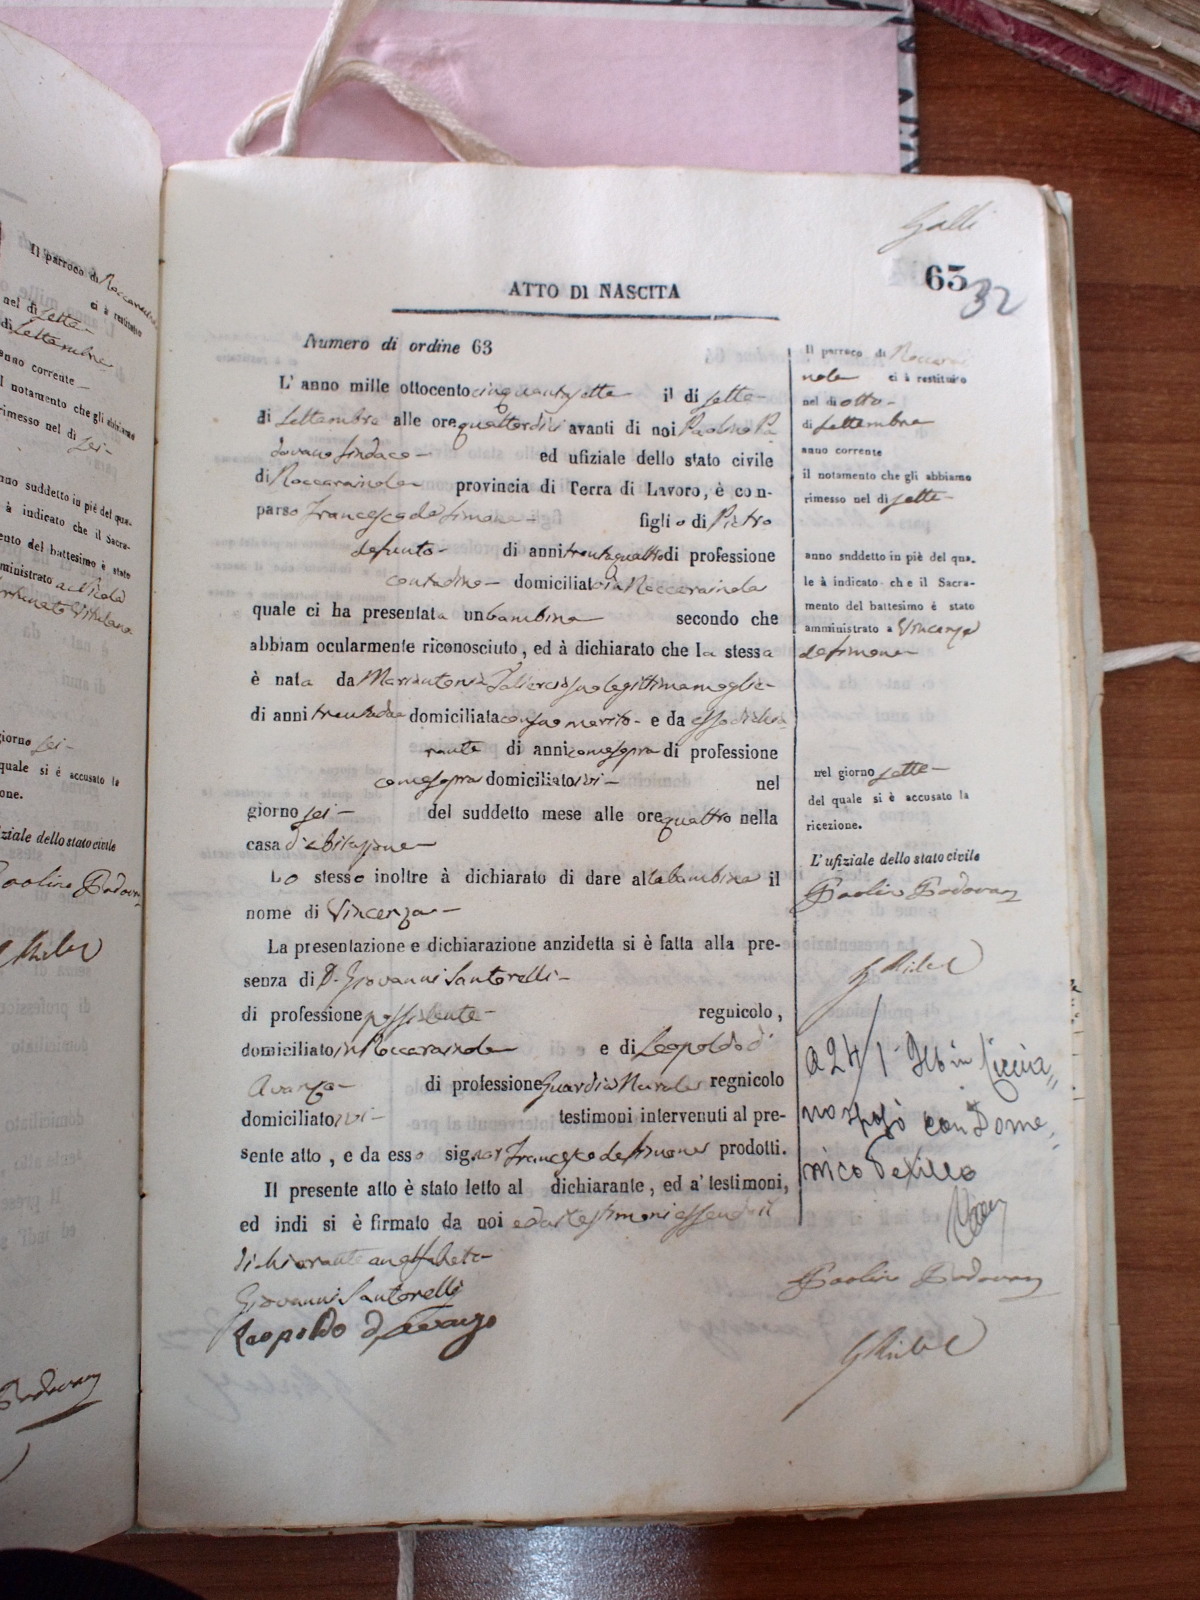 Il parroco di Roccarainola
ci à restituito
nel dì sette
di Settembre
anno corrente
il notamento che gli abbiamo
rimesso nel dì sei
anno suddetto in piè del qua-
le à indicato che il Sacra-
mento del battesimo è stato
amministrato a
giorno sei
quale si è accusato la
one.
ziale dello stato civile
Paolino Padovan
Padovan
Galli
63
32
ATTO DI NASCITA
Numero di ordine 63
L' anno mille ottocento cinquantasette il dì sette
di Settembre alle ore quattordici avanti di noi Paolino Pa
dovano Sindaco ed ufiziale dello stato civile
di Roccarainola provincia di Terra di Lavoro, è con-
parso Francesco de Simone figlio di Pietro
defunto di anni trentaquattro di professione
contadino domiciliato in Roccarainola
quale ci ha presentata un bambina secondo che
abbiam ocularmente riconosciuto, ed à dichiarato che la stessa
è nata da Mariantonia Taliercio sua legittima moglie
di anni trentadue domiciliata con suo marito e da esso dichia
rante di anni come sopra di professione
come sopra domiciliato ivi nel
giorno sei del suddetto mese alle ore quattro nella
casa d'abitazione
Lo stesso inoltre à dichiarato di dare alla bambina il
nome di Vincenza
La presentazione e dichiarazione anzidetta si è fatta alla pre-
senza di D. Giovanni Santorelli
di professione possidente regnicolo,
domiciliato in Roccarainola e di Leopoldo d'
Avanzo di professione Guardia Rurale regnicolo
domiciliato ivi testimoni intervenuti al pre-
sente atto, e da esso signor Francesco de Simone prodotti.
Il presente atto è stato letto al dichiarante, ed a' testimoni,
ed indi si è firmato da noi e dai testimoni essendo il
dichiarante analfabeta
Giovanni Santorelli
Leopoldo d'Avanzo
Il parroco di Roccarai
nola ci à restituito
nel dì otto
di Settembre
anno corrente
il notamento che gli abbiamo
rimesso nel dì sette
anno suddetto in piè del qua-
le à indicato che il Sacra-
mento del battesimo è stato
amministrato a Vincenza
de Simone
nel giorno sette
del quale si è accusato la
ricezione.
L' ufiziale dello stato civile
Paolino Padovan
A 24/1 in Ciccia
no sposò con Dome
nico
Paolino Padovan